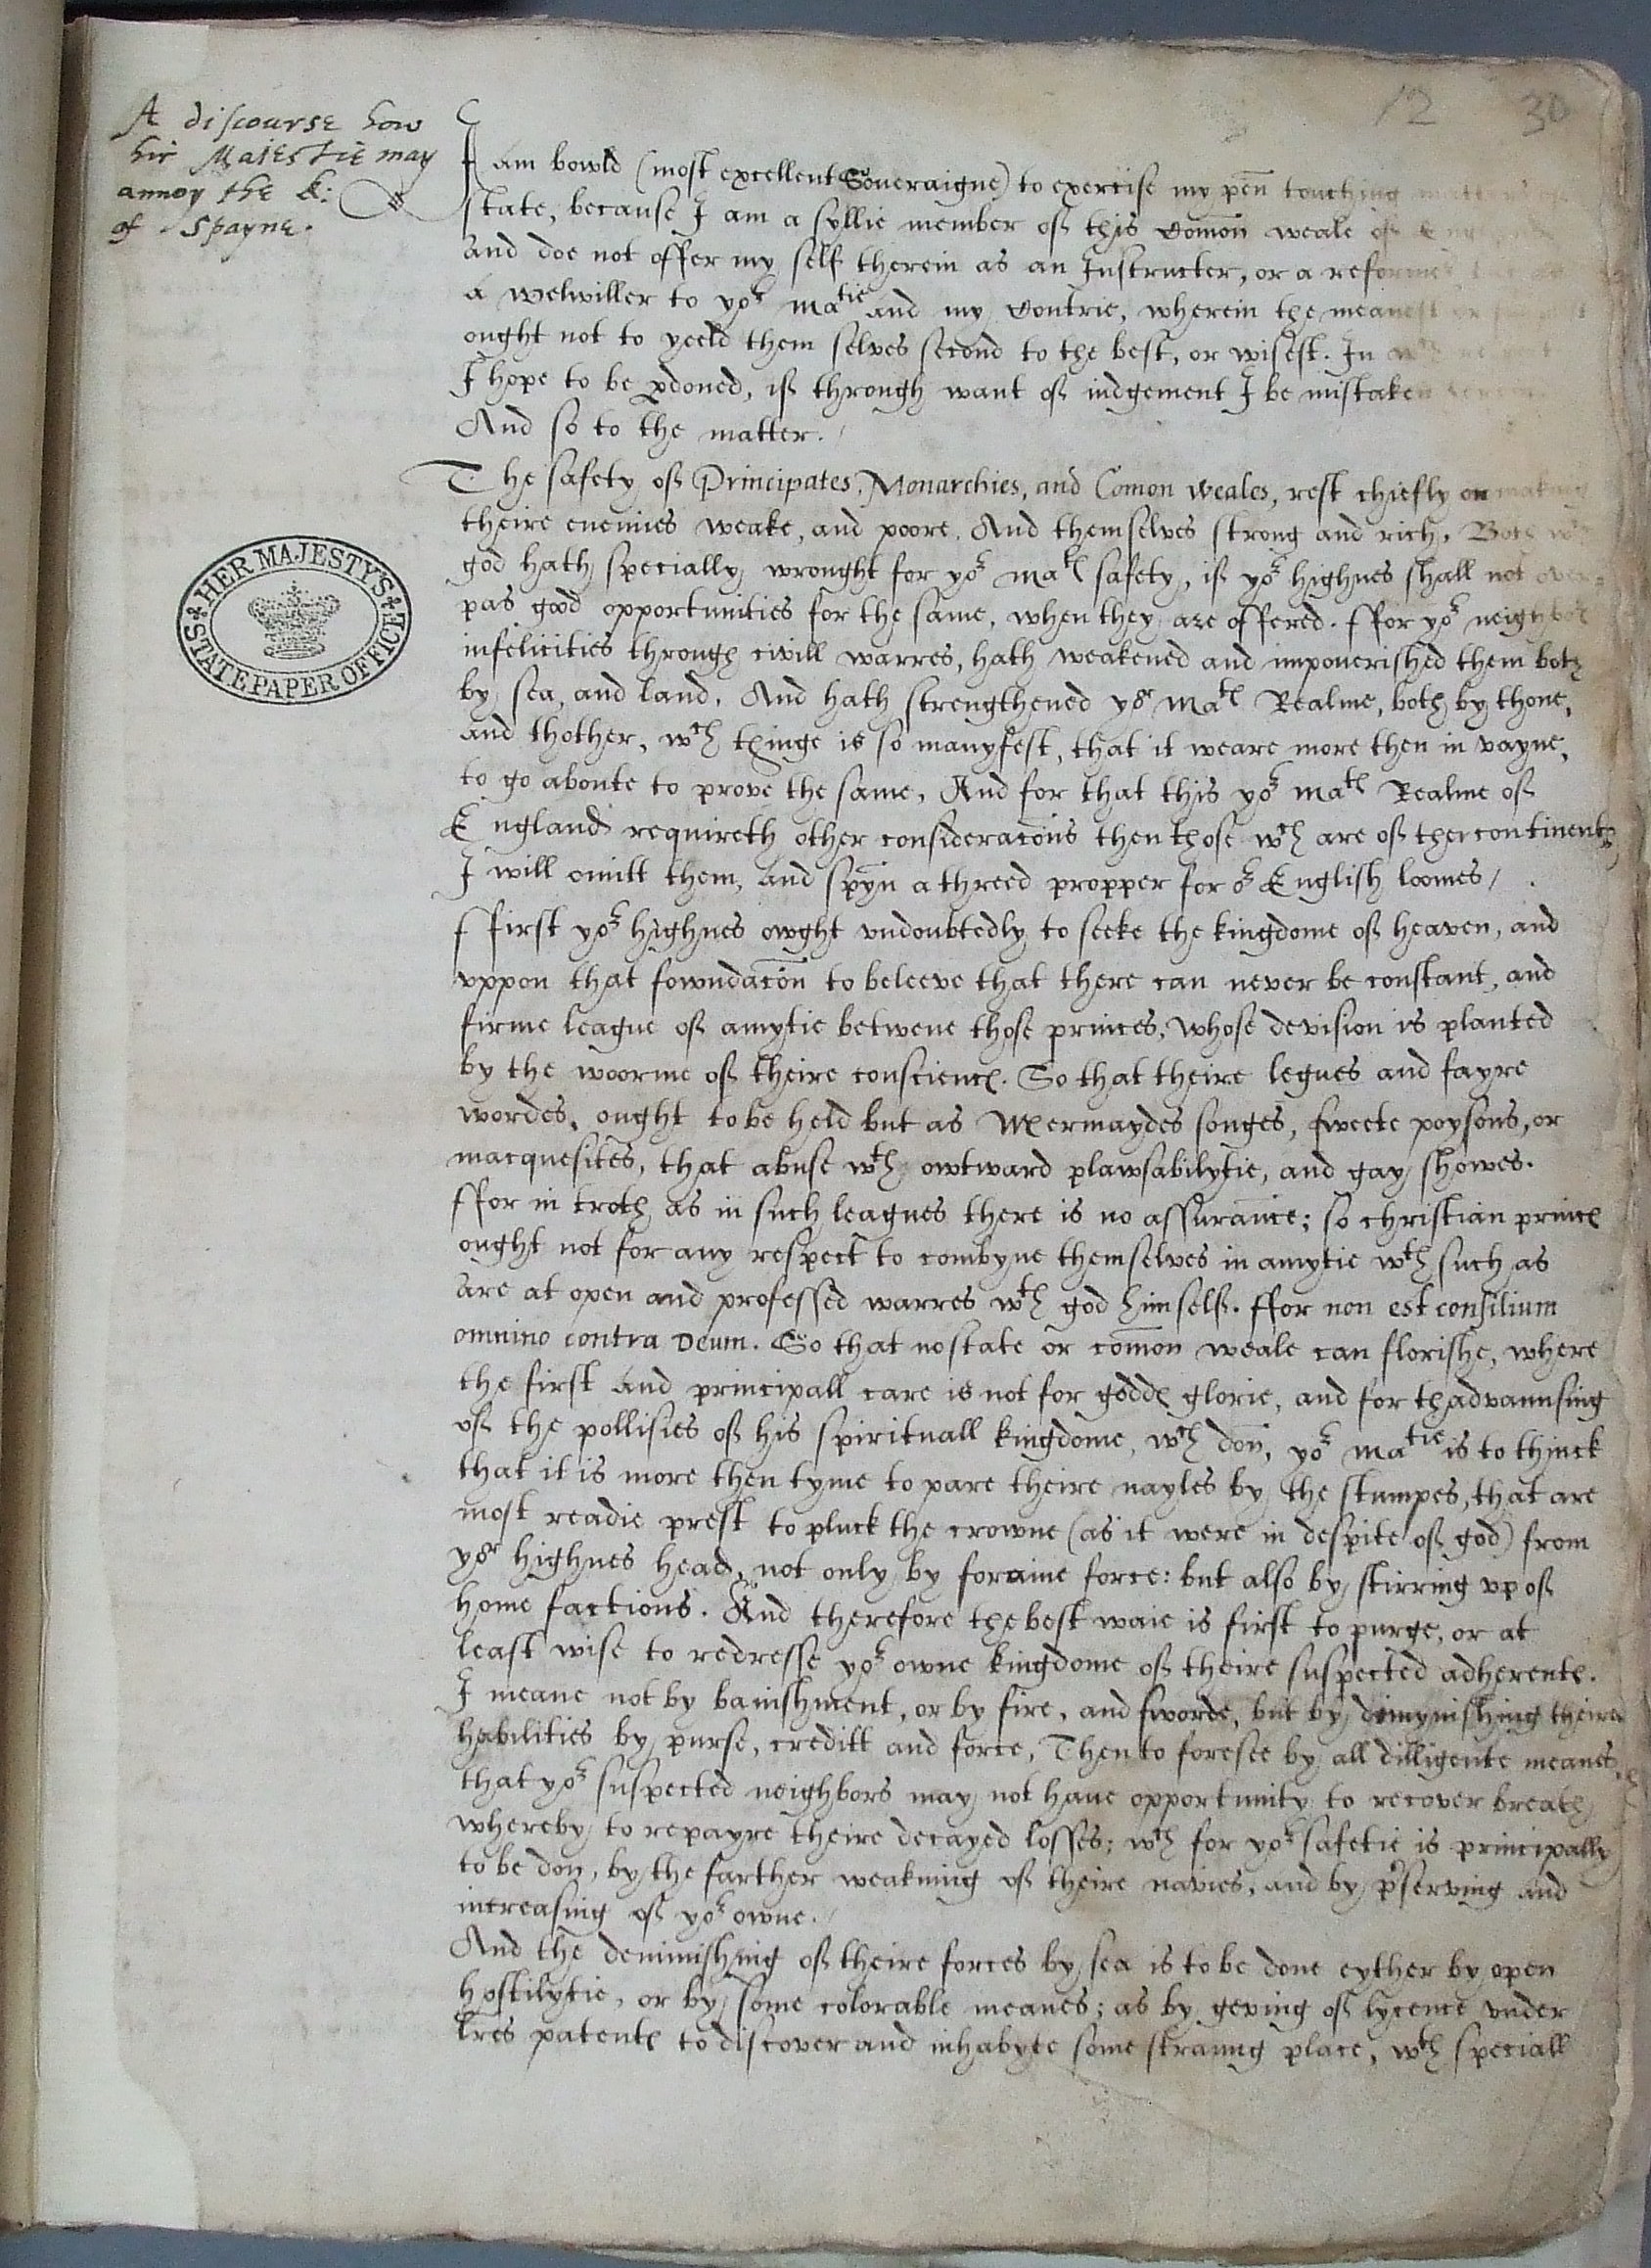 12 30
A discourse how
hir Maiestie may
annoy the k:
of Spayne.
HER MAJESTY'S
STATE PAPER OFFICE
I am bowld (most excellent Soueraigne) to exercise my pen touching matters
state, because I am a syllie member of this Comon weale of Eng
and doe not offer my self therein as an Instructer, or a reformer
a welwiller to yor matie and my Contrie, wherein the meanest or
ought not to yeeld them selves second to the best, or wisest. In wch respect
I hope to be pdoned, if through want of iudgement I be mistaken
And so to the matter.
The safety of Principates, Monarchies, and Comon weales, rest chiefly on making
theire enemies weake, and poore. And themselves strong and rich, Both wch
god hath specially wrought for yor mats safety, if yor highnes shall not over-
pas good opportunities for the same, when they are offered. ffor yor neighbors
infelicities through civill warres, hath weakened and impouerished them both
by sea, and land. And hath strengthened yor mats Realme, both by thone,
and thother, wch thinge is so manyfest, that it weare more then in vayne,
to go aboute to prove the same. And for that this yor mats Realme of
England requireth other consideracons then those wch are of ther continent,
I will omitt them, and spyn a threed propper for or English loomes/
ffirst yor highnes owght vndoubtedly to seeke the kingdome of heaven, and
vppon that fowndacon to beleeve that there can never be constant, and
firme league of amytie betwene those princes, whose devision is planted
by the woorme of theire conscience. So that theire legues and fayre
wordes, ought to be held but as Mermaydes songes, sweete poysons, or
macquesites, that abuse wth owtward plawsabilytie, and gay showes.
ffor in troth as in such leagues there is no assurance; so christian princes
ought not for any respect to combyne themselves in amytie wth such as
are at open and professed warres wth god himself. ffor non est consilium
omnino contra Deum. So that no state or comon weale can florishe, where
the first and principall care is not for goddes glorie, and for thadvaunsing
of the pollisies of his spirituall kingdome, wch don, yor matie is to thinck
that it is more then tyme to pare theire nayles by the stumpes, that are
most readie prest to pluck the crowne (as it were in despite of god) from
yor highnes head, not only by foraine force: but also by stirring vp of
home factions. And therefore the best waie is first to purge, or at
least wise to redresse yor owne kingdome of theire suspected adherentes.
I meane not by banishment, or by fire, and sworde, but by diminishing theire
habilities by purse, creditt and force. Then to foresee by all dilligente meanes,
that yor suspected neighbors may not haue opportunity to recover breath
whereby to repayre theire decayed losses; wch for yor safetie is principally
to be don, by the farther weakning of theire navies, and by pserving and
increasing of yor owne.
And the deminishing of theire forces by sea is to be done eyther by open
hostilytie, or by some colorable meanes; as by geving of lycence vnder
lres patentes to discover and inhabyte some straung place, wth speciall